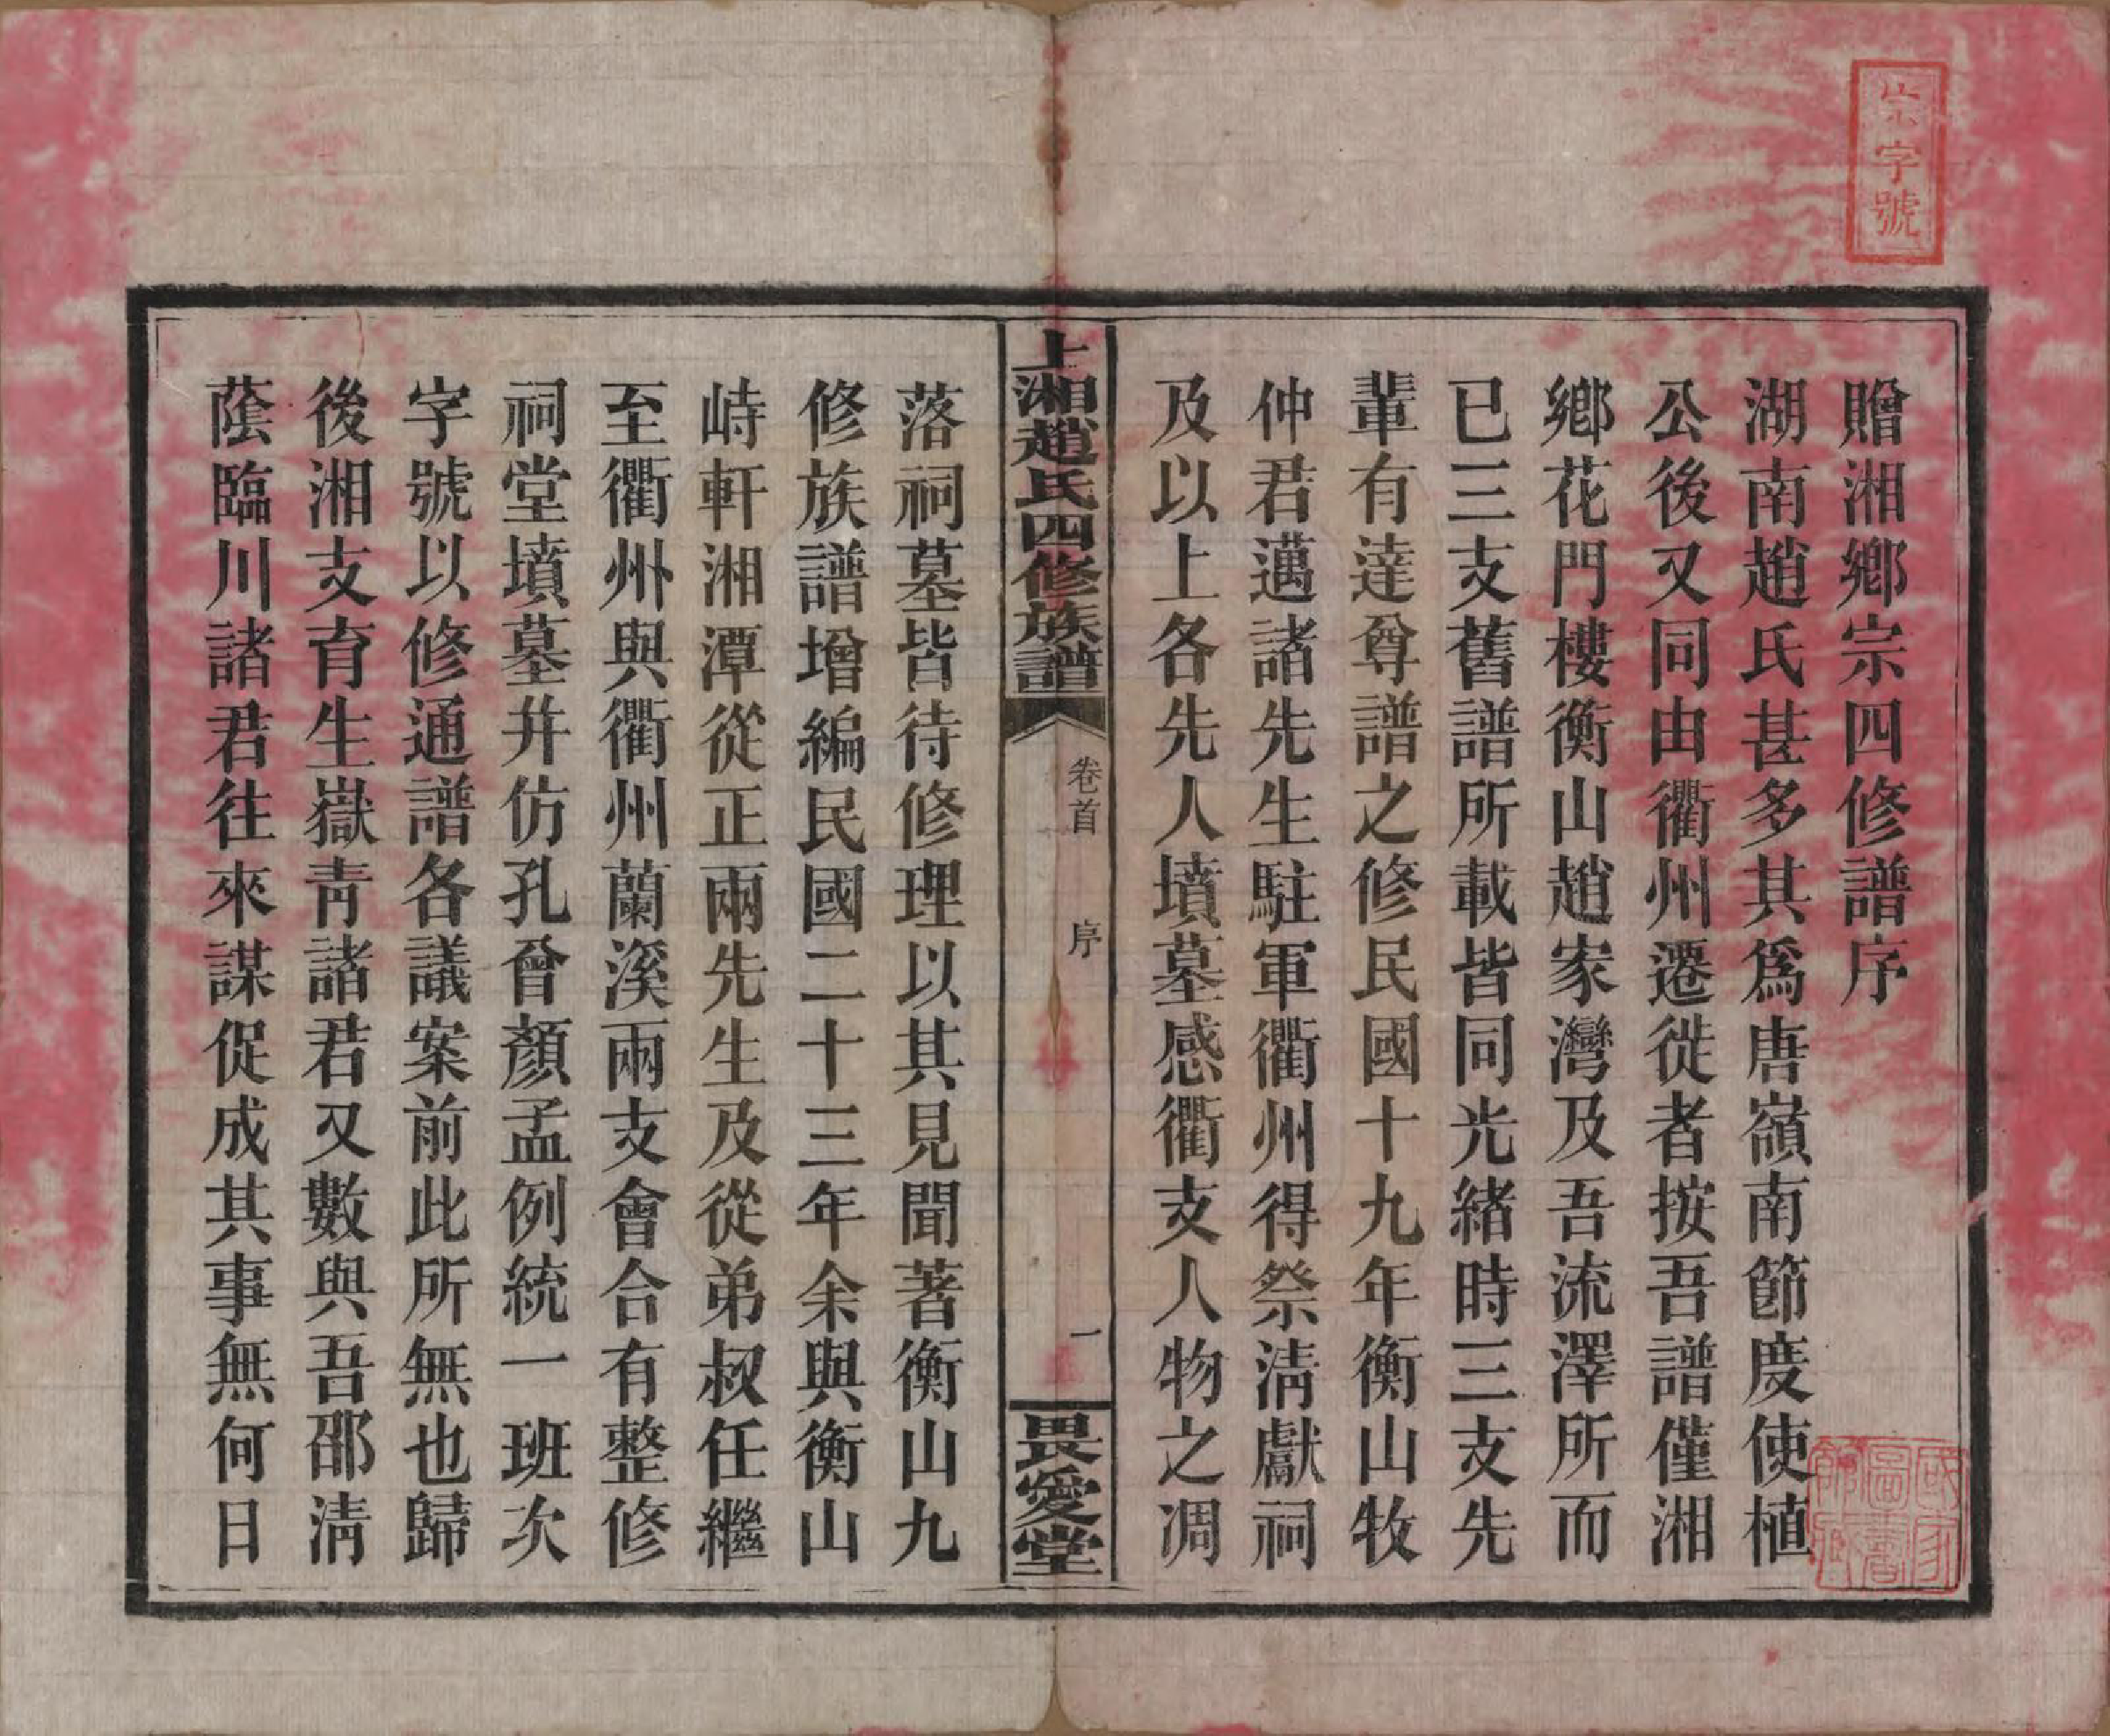 宗字號
贈湘鄉宗四修譜序
湖南趙氏甚多其爲唐嶺南節度使植
公後又同由衢州遷徙者按吾譜僅湘
鄉花門樓衡山趙家灣及吾流澤所而
已三支舊譜所載皆同光緒時三支先
輩有達尊譜之修民國十九年衡山牧
仲君邁諸先生駐軍衢州得祭淸獻祠
及以上各先人墳墓感衢支人物之凋
上湘趙氏四修族譜
卷首
序
一
畏愛堂
落祠墓皆待修理以其見聞著衡山九
修族譜增編民國二十三年余與衡山
峙軒湘潭從正兩先生及從弟叔任繼
至衢州與衢州蘭溪兩支會合有整修
祠堂墳墓幷仿孔曾顏孟例統一班次
字號以修通譜各議案前此所無也歸
後湘支育生嶽靑諸君又數與吾邵淸
蔭臨川諸君往來謀促成其事無何日
國家圖書館藏